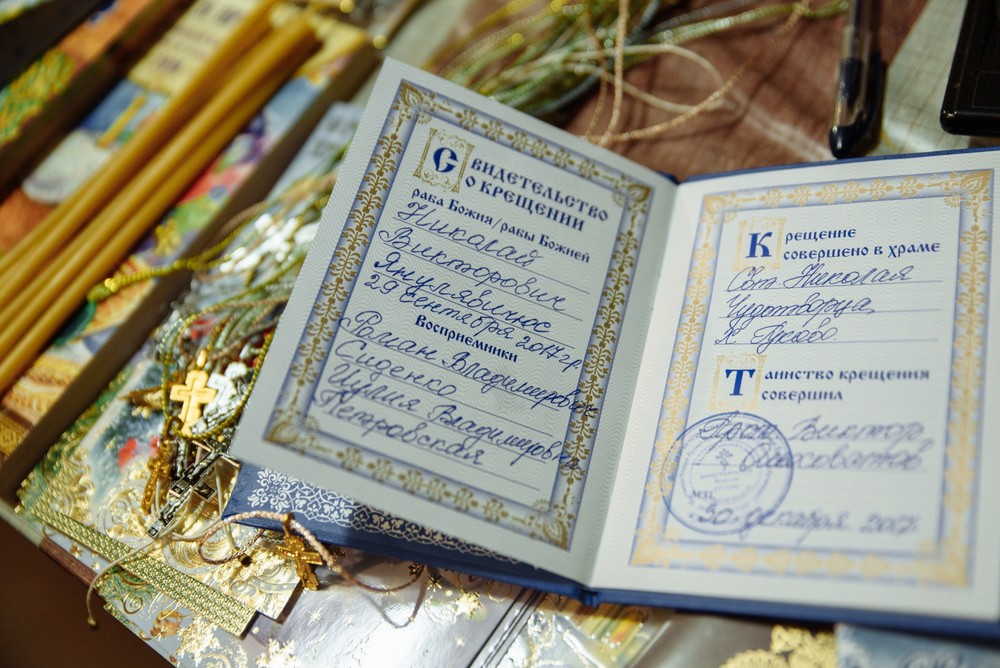 Свидетельство
о крещении
раба Божия/рабы Божией
Николай
Викторович
Янулявичюс
29 сентября 2017 г.
Восприемники
Роман Владимирович
Сиденко
Юлия Владимировна
Петровская
Крещение
совершено в храме
Свт. Николая
Чудотворца,
Таинство крещения
совершил
Прот. Виктор
30 декабря 2017